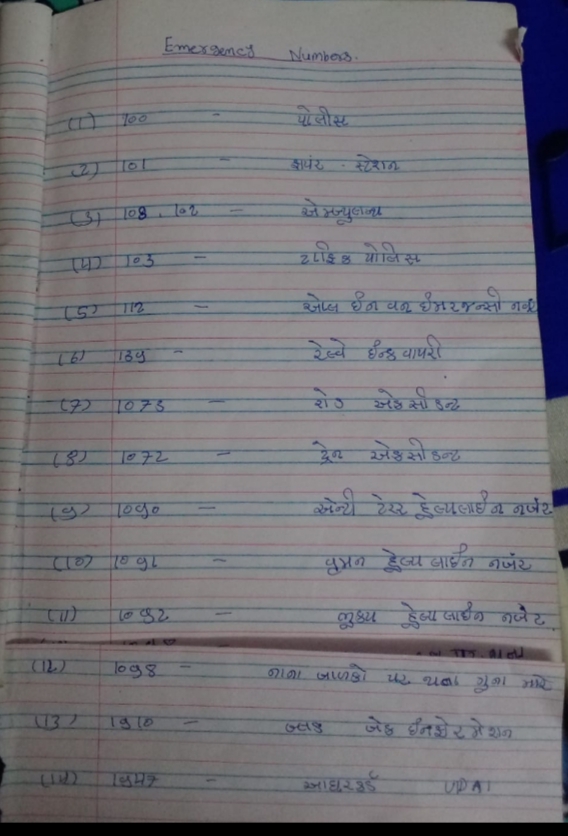 Emergency Numbers.
(1) 100 - પોલીસ
(2) 101 - ફાયર સ્ટેશન
(3) 108, 102 - એમ્બ્યુલન્સ
(4) 103 - ટ્રાફિક પોલિસ
(5) 112 - ઓલ ઈન વન ઈમરજન્સી નંબર
(6) 139 - રેલ્વે ઈન્કવાયરી
(7) 1073 - રોડ એકસીડન્ટ
(8) 1072 - ટ્રેન એકસીડન્ટ
(9) 1090 - એન્ટી ટેરર હેલ્પલાઈન નબંર
(10) 1091 - વુમન હેલ્પ લાઈન નબંર
(11) 1092 - હેલ્પ લાઈન નબંર
(12) 1098 - નાના બાળકો પર થતા ગુના માટે
(13) 1910 - બ્લડ બેંક ઈનફોરમેશન
(14) 1947 - આધારકાર્ડ UDAI